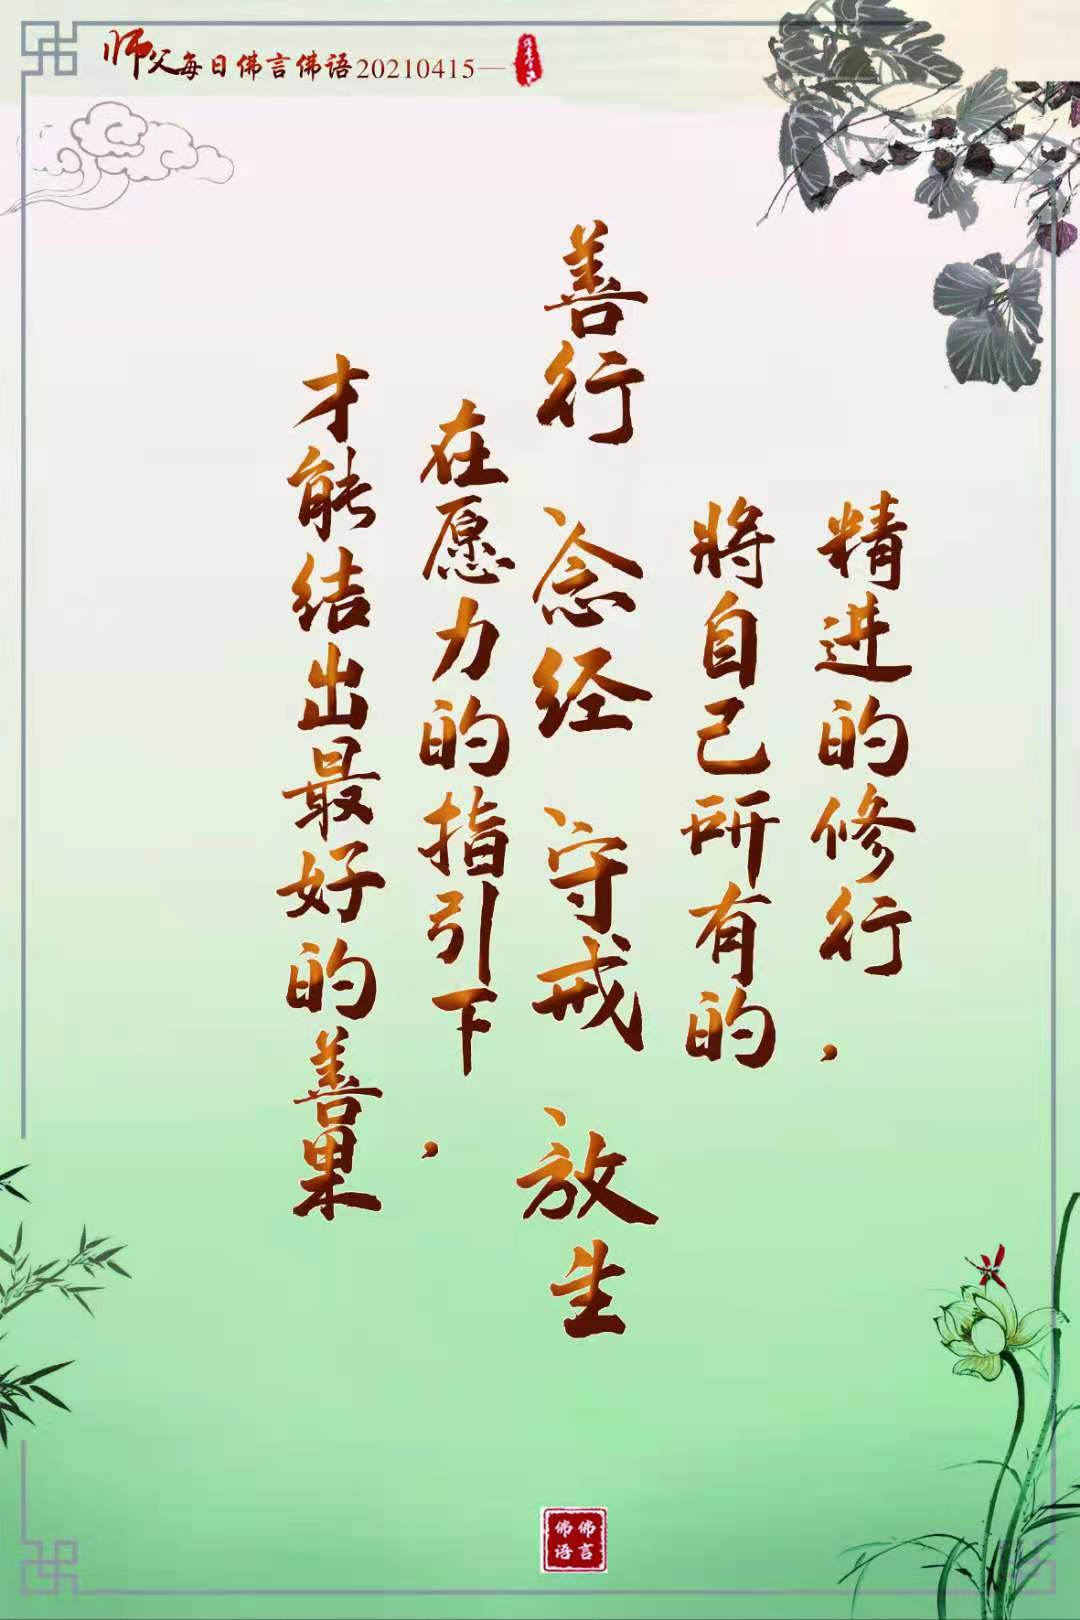 师父每日佛言佛语20210415—
精进的修行，
将自己所有的
善行、念经、守戒、放生
在愿力的指引下，
才能结出最好的善果
佛言
佛语